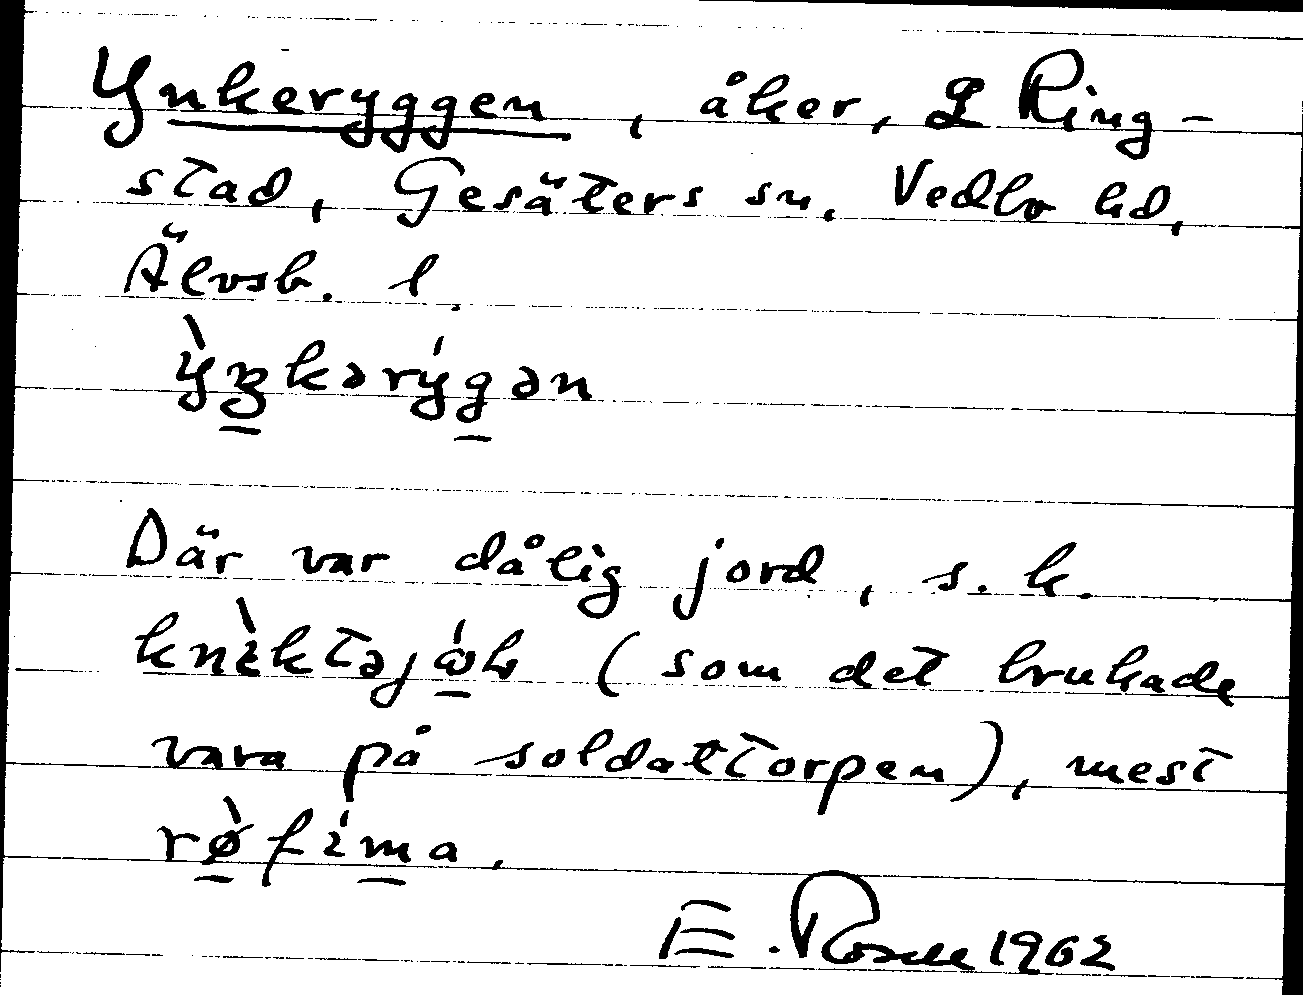 Ynkeryggen, åker, L Ring-
stad, Gesäters sn. Vedbo hd,
Älvsb. l.
ỳŋkərýgən
Där var dålig jord, s.k.
knɛ̀ktəjóɷ́ḷ (som det brukade
vara på soldattorpen), mest
rø̀fíma.
E. Rosell 1962